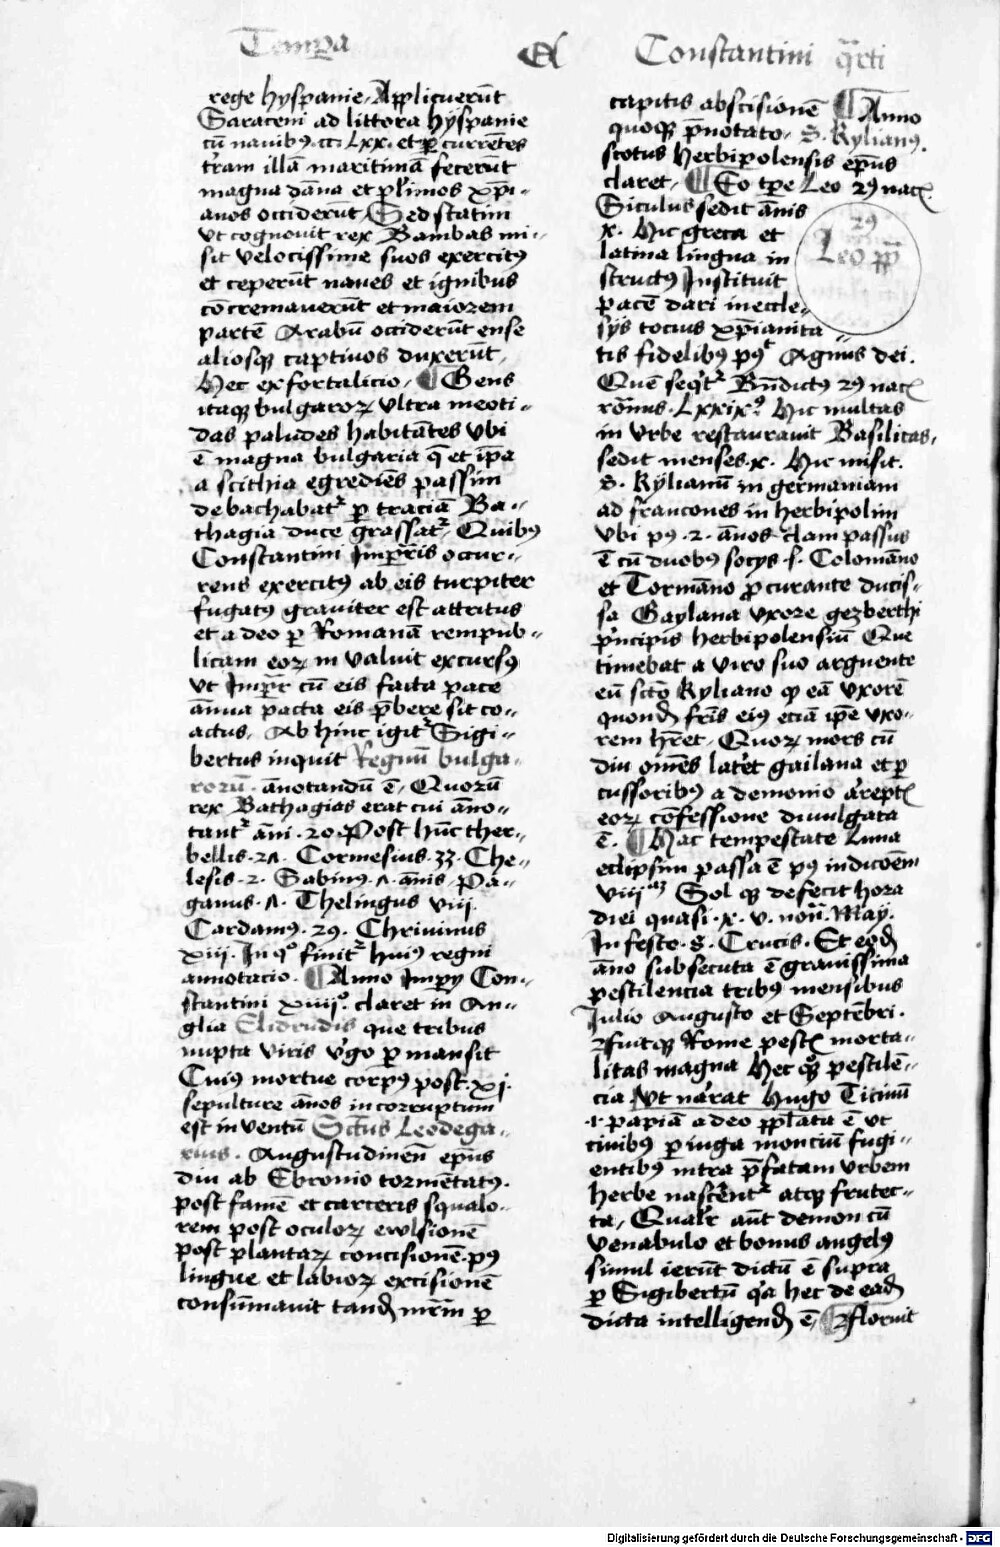 Tempa
Constantini q̄rti
rege hyspanie. Applicuerūt
Saraceni ad littora hyspanie
cū nauibꝰ. cc. Lxx. et ꝑcurrētes
t'ram illā maritimā fecerūt
magna dāna et pl'imos xp̄i-
anos occiderūt Sed statim
vt cognouit rex Bambas mi-
sit velocissime suos exercitꝰ
et ceperūt naues et ignibus
cōcremauerūt et maiorem
partē Arabū occiderūt ense
aliosqꝫ captiuos duxerūt,
Hec ex fortalicio. ¶ Gens
itaqꝫ bulgaroꝝ vltra meoti-
das paludes habitātes vbi
ē magna bulgaria q̄ et ip̄a
a scithia egrediēs passim
debachabat' ꝑ traciā Ba-
thagia duce grassat'. Quibꝰ
Constantini Imꝑ̄ris occur-
rens exercitꝰ ab eis turpiter
fugatꝰ grauiter est attritus
et adeo ꝑ Romanā rempub-
licam eoꝝ inualuit excursꝰ
vt Imꝑ̄r cū eis facta pace
ānua pacta eis p̄bere sit co-
actus. Ab hinc igit' Sigi-
bertus inquit Regnū bulga-
rorū. ānotandū ē. Quorū
rex Bathagias erat cui āno-
tant' āni. 20. Post hūc ther-
bellis. 21. Cormesius. 33. Che-
lesis. 2. Sabinꝰ. 1. ānis. Pa-
ganus. 1. Thelingus viij.
Cardamꝰ. 29. Chriuinus
xiij. In qº finit' huiꝰ regni
annotacio. ¶ Anno Impery Con-
stantini xviijº. claret in An-
glia Elidrudis que tribus
nupta viris v'go ꝑmansit
Cuiꝰ mortue corpꝰ post. xj.
sepulture ānos incorruptum
est inuentū Sctūs Leodega-
rius. Augustudinēn ep̄us
diu ab Ebronio tormētatꝰ.
post famē et carceris squalo-
rem post oculoꝝ ewlsionē
post plantaꝝ concisionē. pꝰ
lingue et labioꝝ excisionē
consūmauit tandē mr̄im ꝑ
capitis abscisionē ¶ Anno
quoqꝫ p̄notato. S. Kylianꝰ.
scotus herbipolensis ep̄us
claret. ¶ Eo tꝑe Leo 29 nac̄
Siculus sedit ānis
x. Hic greca et
latina lingua in
structꝰ Instituit
pacē dari in eccle-
sijs tocius xp̄ianita-
29
Leo pp̄
tis fidelibꝰ pꝰt Agnus dei.
Quē seqt' Bn̄dictꝰ 29 nac̄
rōmus. Lxxixꝰ. Hic multas
in vrbe restaurauit Basilicas,
sedit menses. x. Hic misit.
S. Kylianū in germaniam
ad francones in herbipolim
vbi pꝰ. 2. ānos clam passus
ē cū duobꝰ socys. s. Colomāno
et Tormāno ꝓcurante ducis-
sa Gaylana vxore gezberthi
p'ncipis herbipolensiū Que
timebat a viro suo arguente
eū sc̄to Kyliano qꝫ eā vxorē
quondā fr̄is eiꝰ etiā ip̄e vxo-
rem hr̄et. Quoꝝ mors cū
diu om̄es lat'et gailana et ꝑ
cussoribꝰ a demonio arept̄
eoꝝ cōfessione diuulgata
ē. ¶ Hac tempestate Luna
eclipsim passa ē pꝰ indicōem
viij Sol qꝫ defecit hora
diei quasi. x. v. non̄. May.
In festo. S. Crucis. Et eodē
āno subsecuta ē grauissima
pestilencia tribꝰ mensibus
Julio Augusto et Septēbri.
fuitqꝫ Rome pest̄ morta-
litas magna Hec qꝫ pestilē-
cia. Vt narrat Hugo Ticinū
.i. papiā adeo ꝓplata ē vt
ciuibꝰ ꝑ iuga monciū fugi-
entibꝰ intra p̄fatam vrbem
herbe nascēnt' atqꝫ frutec-
ta. Qual'r aūt demon cū
venabulo et bonus angelꝰ
simul ierūt dictū ē supra
ꝑ Sigibertū q'a hec de eadē
dicta intelligendā ē. ¶ floruit
Digitalisierung gefördert durch die Deutsche Forschungsgemeinschaft - DFG